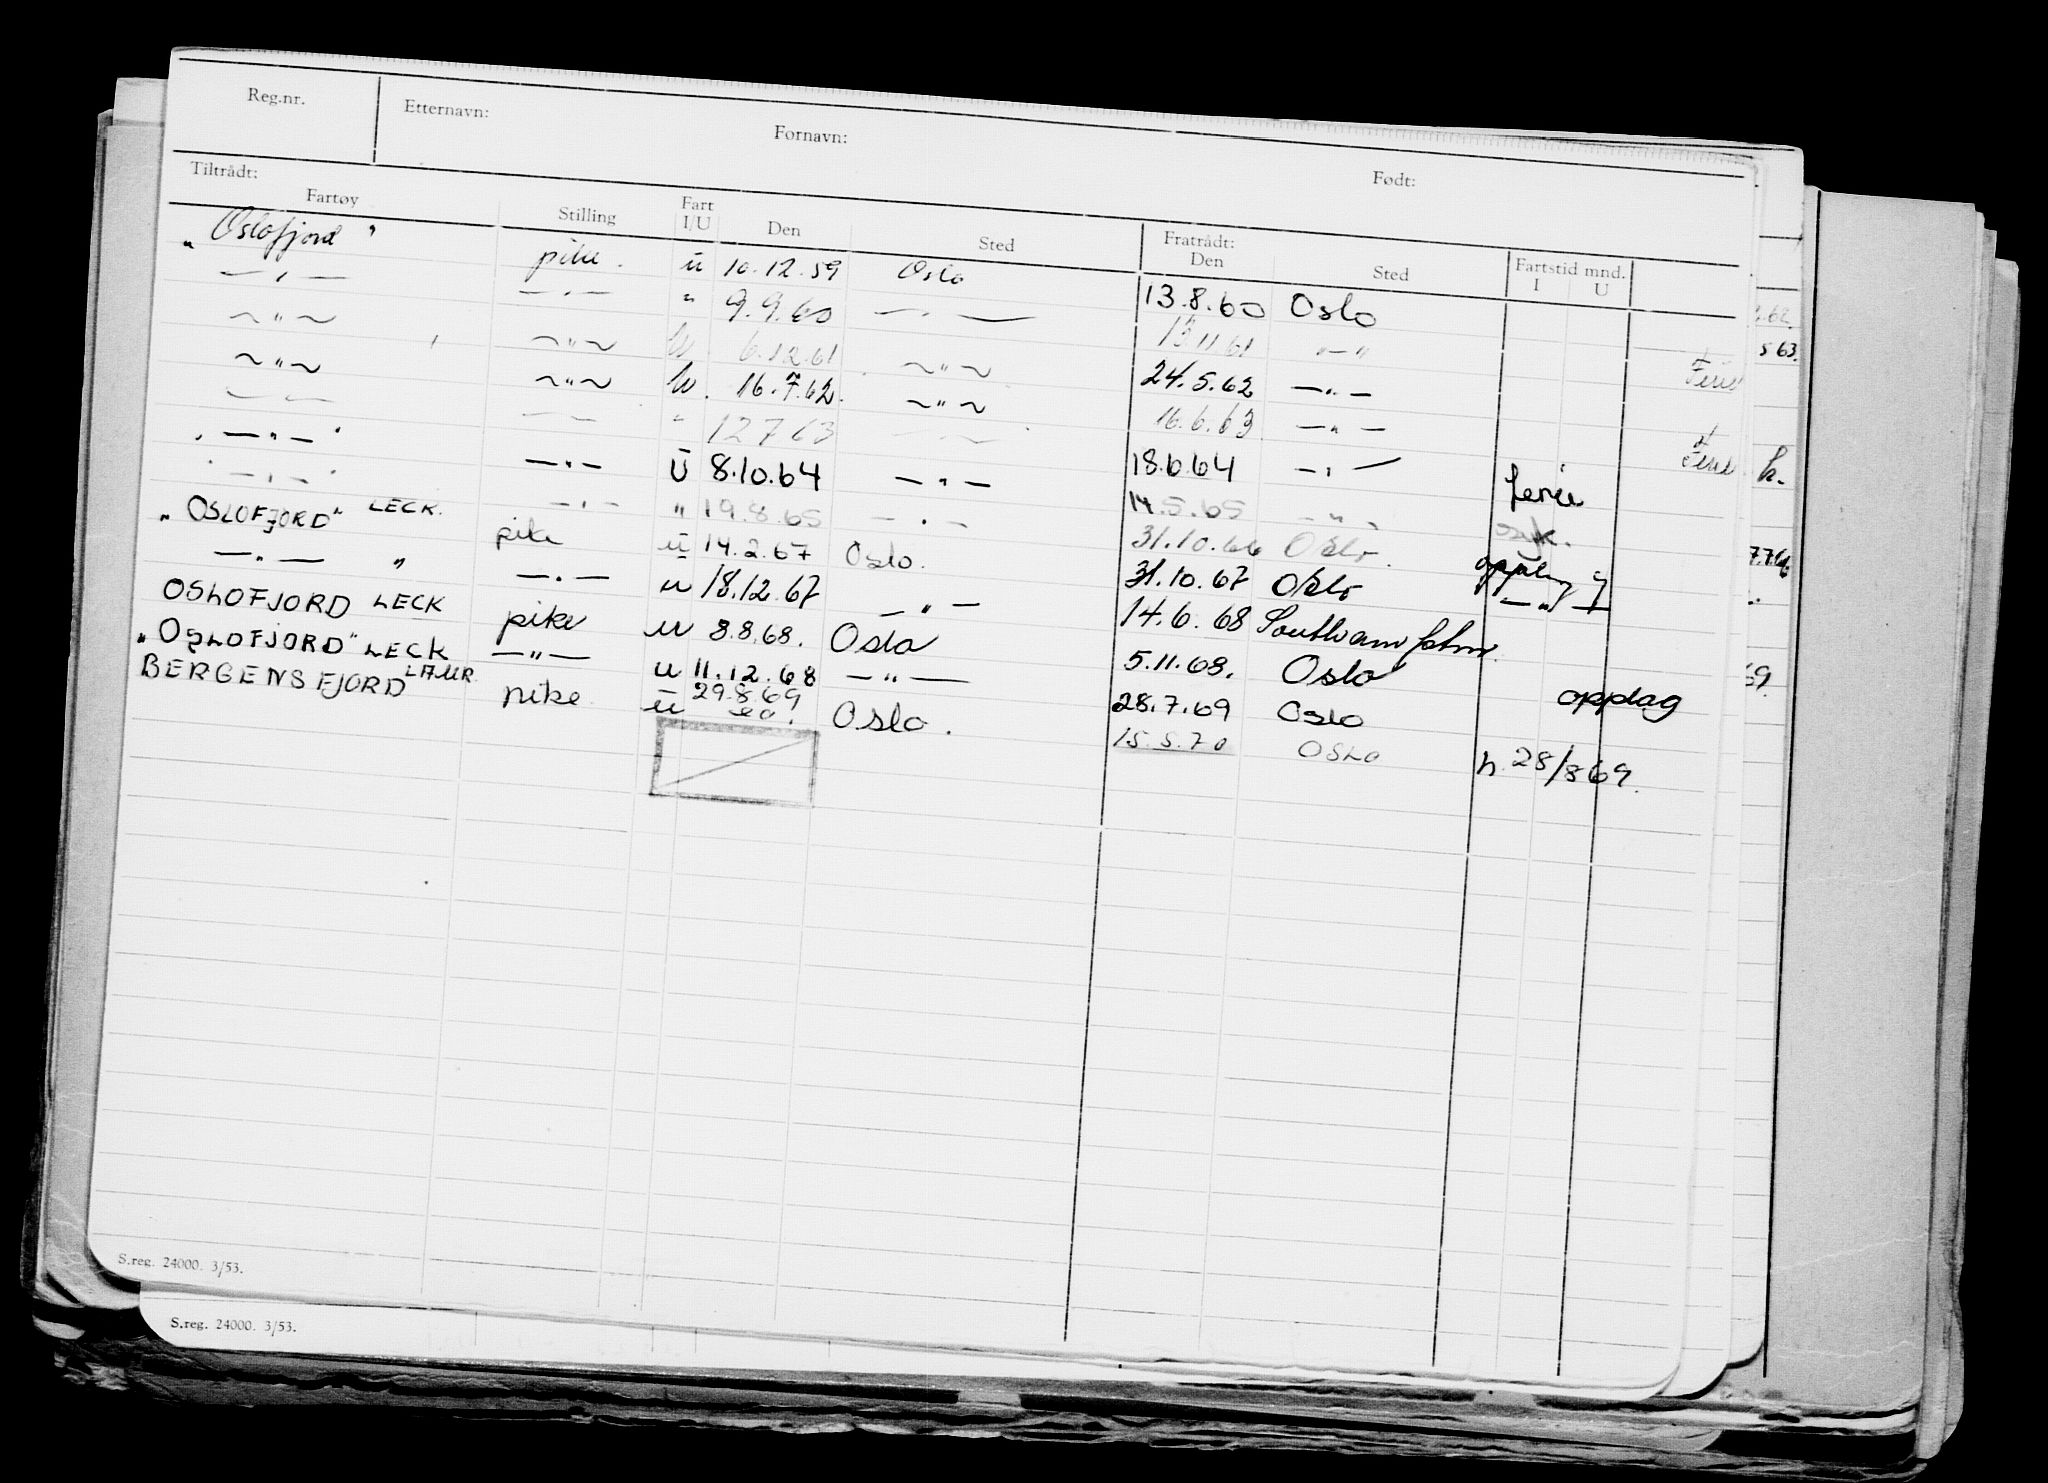 Reg.nr. Etternavn: Fornavn: Født:
Tiltrådt: Fratrådt:
Fartøy Stilling Fart I/U Den Sted Den Sted Fartstid mnd. I U
„Oslofjord" pike. ü 10.12.59 Oslo 13.8.60 Oslo
— „ — — „ — " 9.9.60 — „ — 13.11.61 — " —
~ " ~ ~ " ~ U 6.12.61 ~ " ~ 24.5.62 — „ — Ferie
~ " ~ ~ " ~ U. 16.7.62. ~ " ~ 16.6.63 — „ —
— — — — " 12 7 63 — „ — 18.6.64 — „ — ferie Ferie
— „ — — „ — Ü 8.10.64 — „ — 14.5.65 — " — syk.
— „ — — „ — " 19.8.65 — „ — 31.10.66 Oslo opplag
„OSLOFJORD" LECK. pike ü 14.2.67 Oslo. 31.10.67 Oslo — " —
— „ — " — „ — u 18.12.67 — " — 14.6.68
OSLOFJORD LECK pike u 8.8.68. Oslo 5.11.68. Oslo opplag
„OSLOFJORD" LECK — " — u 11.12.68 — " — 28.7.69 Oslo
BERGENSFJORD LAUR. pike ü 29.8.69 Oslo. 15.5.70 OSLO h. 28/8 69.
S.reg. 24000. 3/53.
S.reg. 24000. 3/53.
563.
h.
69.